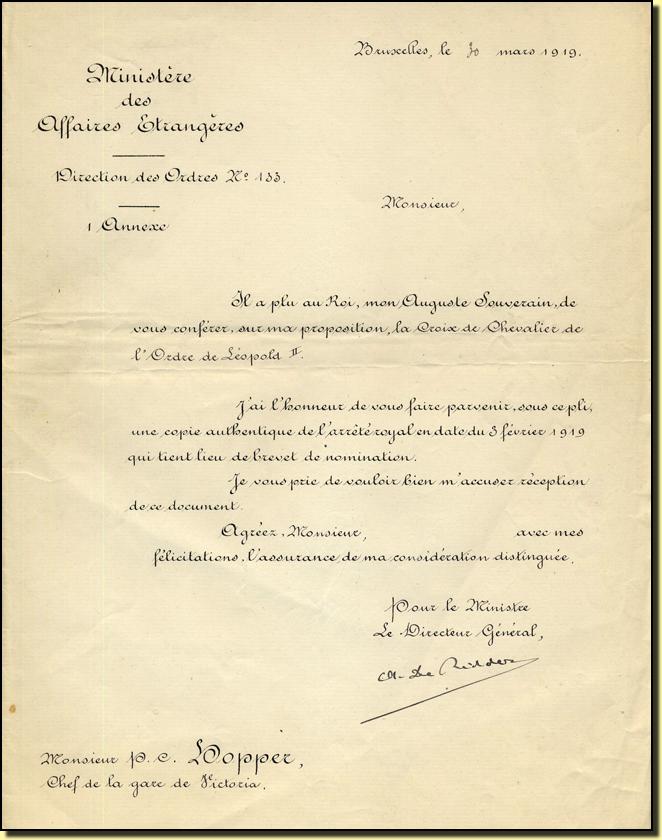 Bruxelles, le 30 mars 1919.
Ministère
des
Affaires Etrangères
Direction des Ordres Nº 133.
1 Annexe
Monsieur,
Il a plu au Roi, mon Auguste Souverain, de
vous conférer, sur ma proposition, la Croix de Chevalier de
l'Ordre de Léopold II.
J'ai l'honneur de vous faire parvenir, sous ce pli,
une copie authentique de l'arrêté royal en date du 3 février 1919
qui tient lieu de brevet de nomination.
Je vous prie de vouloir bien m'accuser réception
de ce document.
Agréez, Monsieur, avec mes
félicitations, l'assurance de ma considération distinguée.
Pour le Ministre
Le Directeur Général,
De Ridder
Monsieur P. C. Hopper,
Chef de la gare de Victoria.